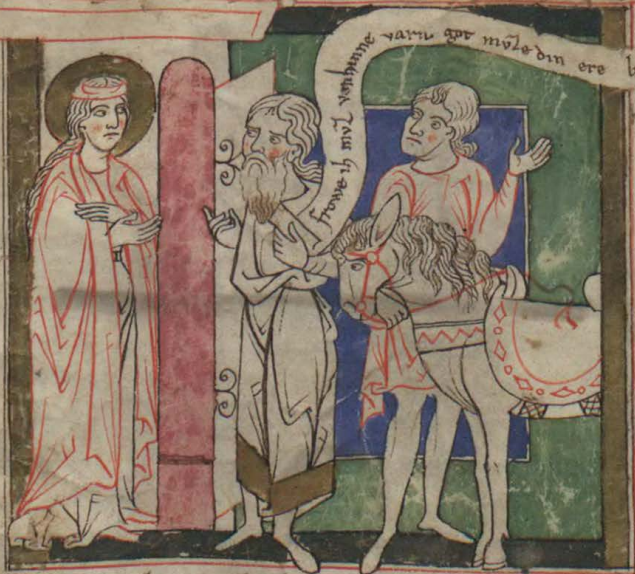 frowe ih mvͦz vonhinne varn got mvͤze din ere